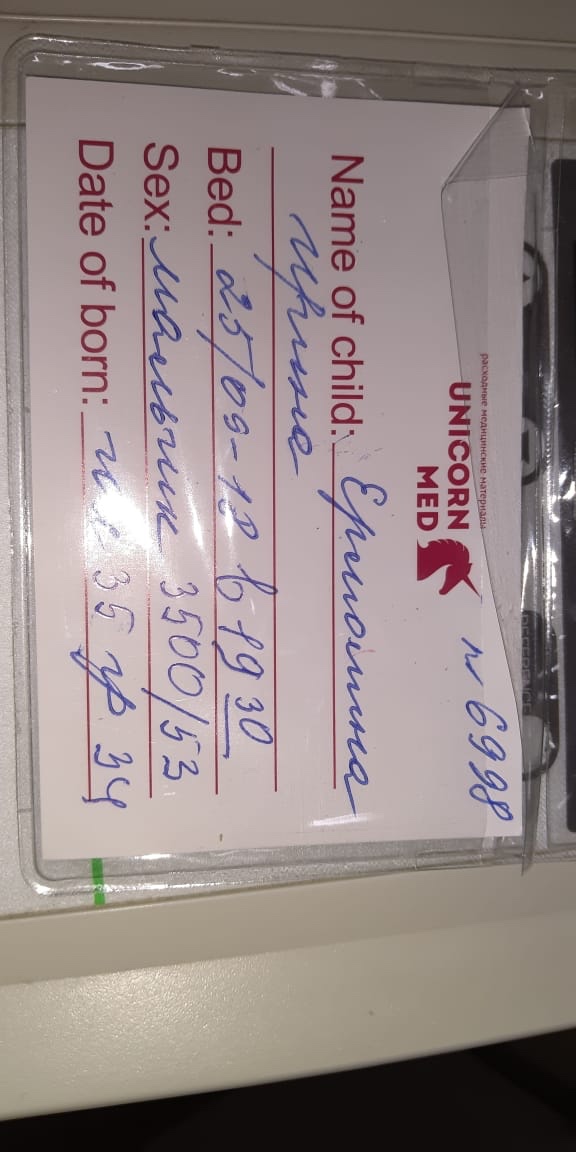 расходные медицинские материалы
UNICORN
MED
№ 6998
Name of child: Ермолина
Ирина
Bed: 25/09-18 в 19 30
Sex: мальчик 3500/53
Date of born: 35 гр 34
REFERENCE